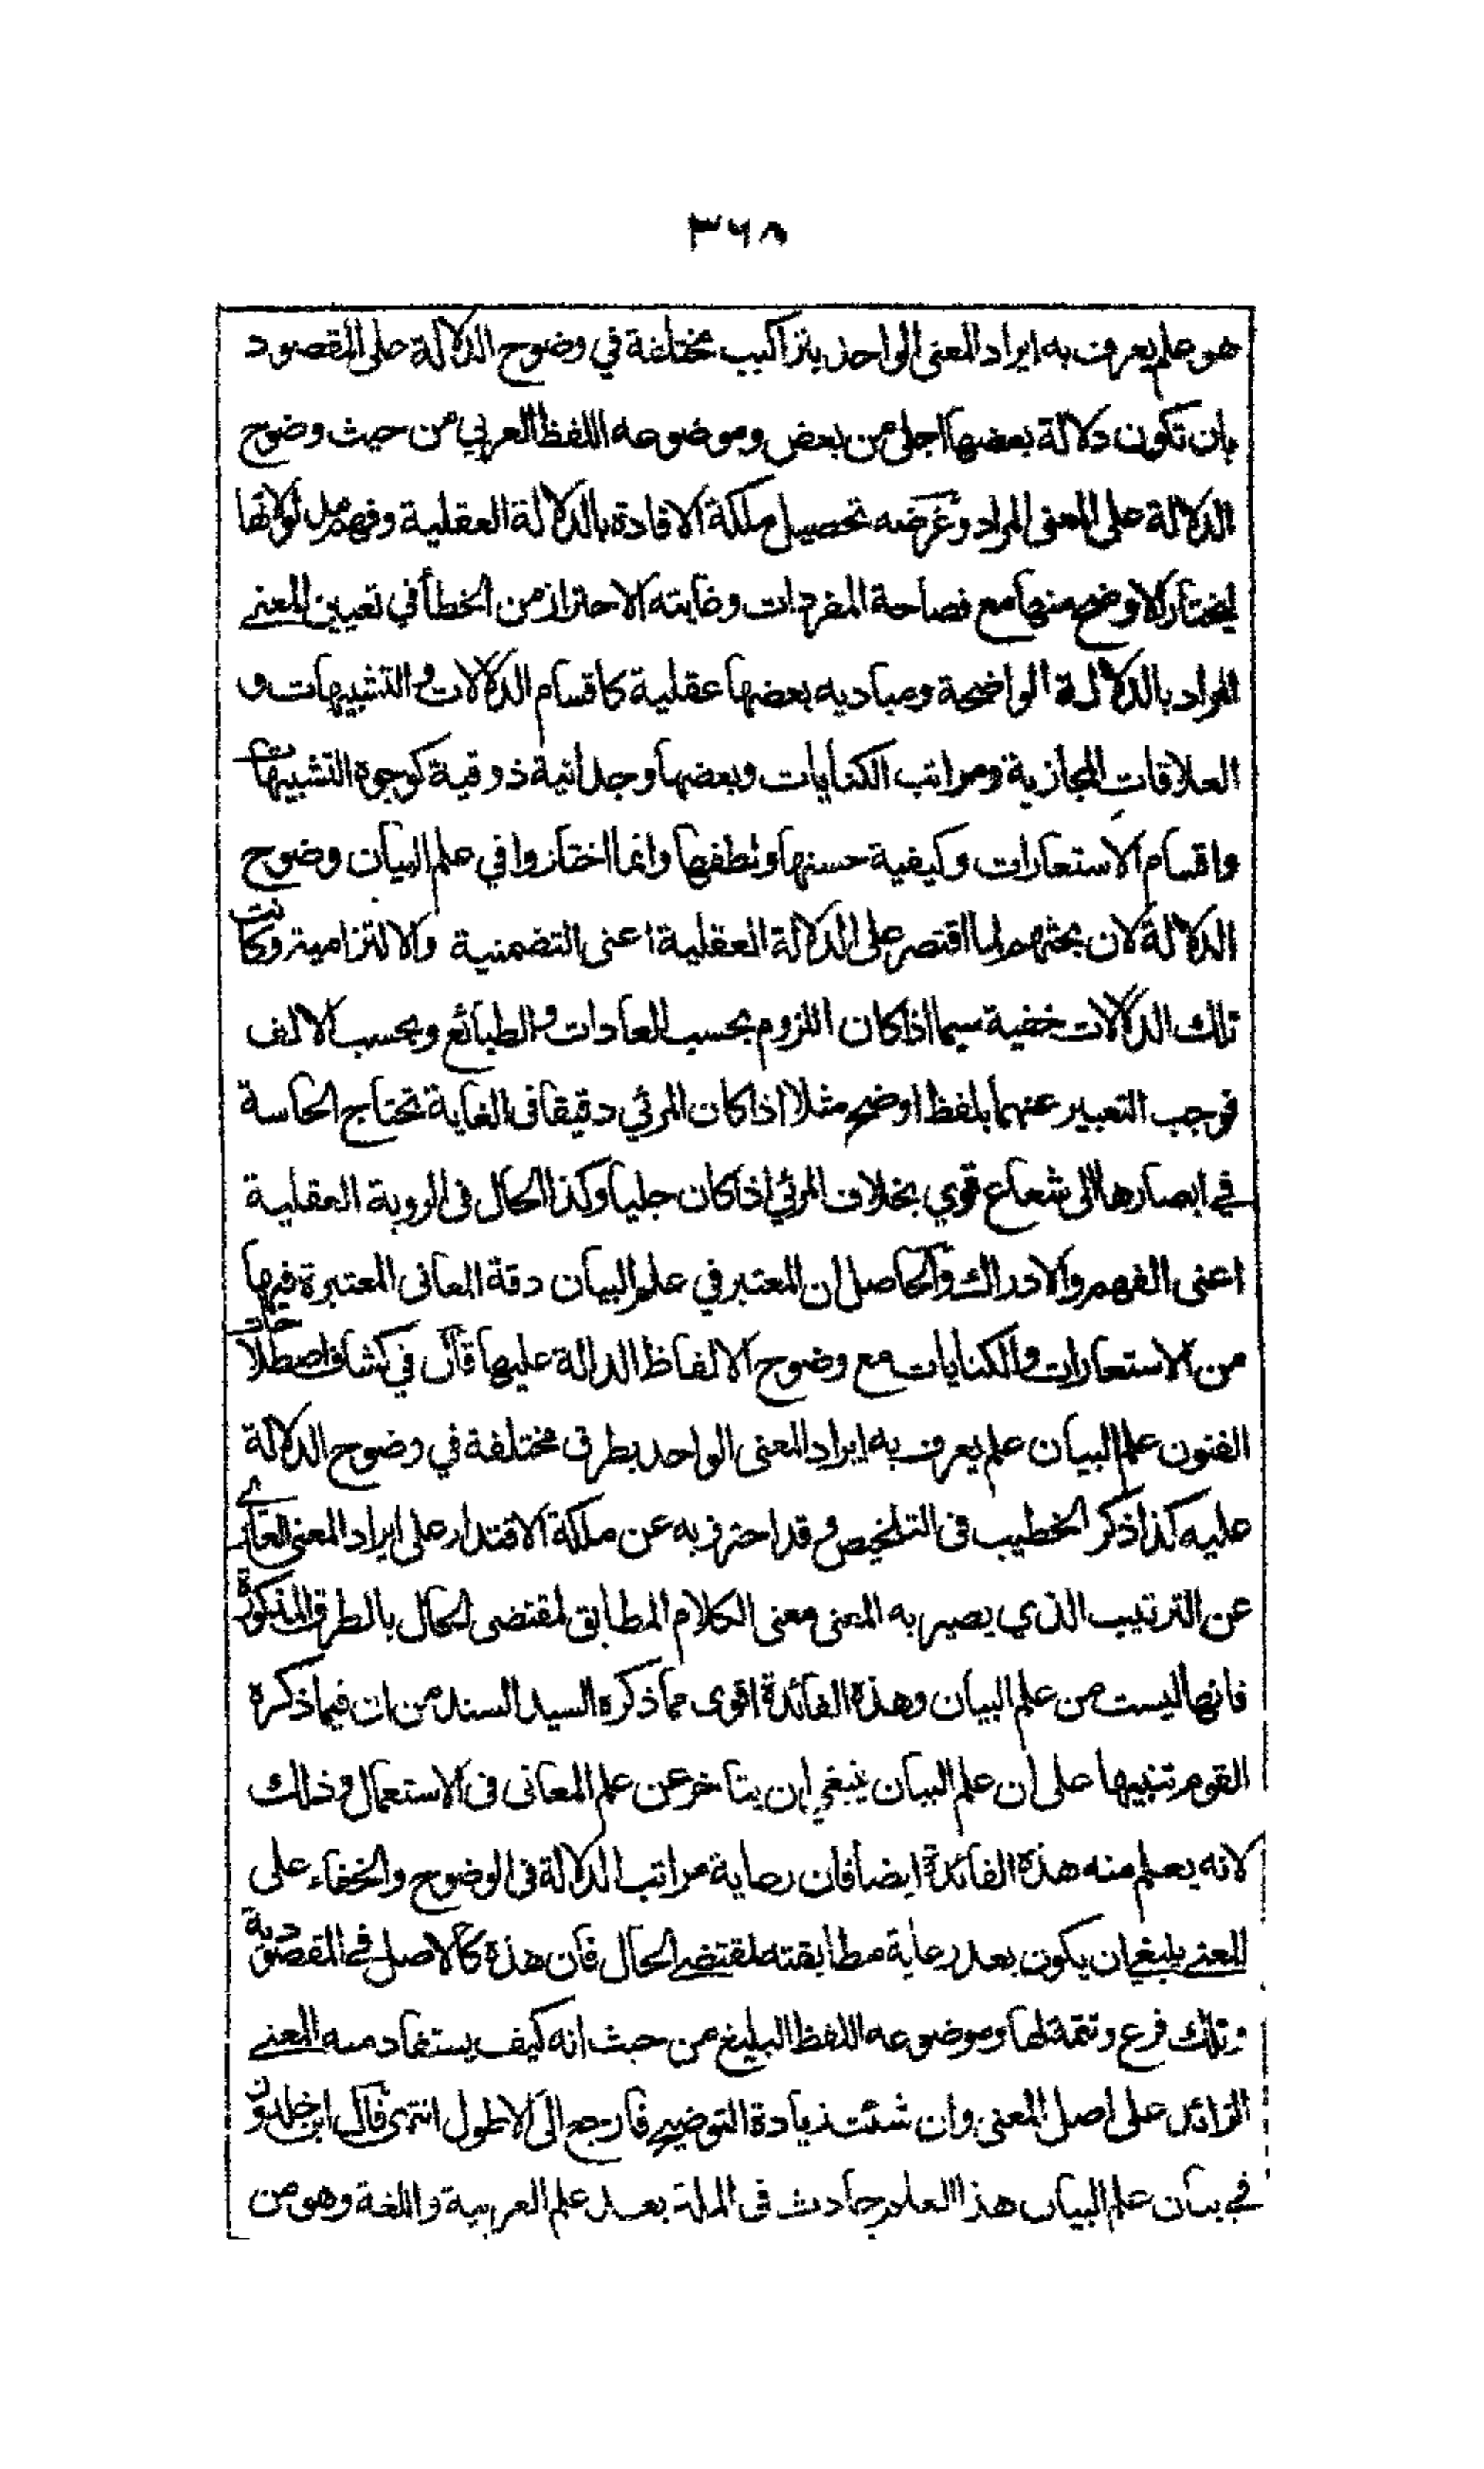 ٣٦٨
هو علم يعرف به ايراد المعنى الواحد بتراكيب مختلفة في وضوح الدلالة على المقصود
بان تكون دلالة بعضها اجلى من بعض وموضوعه اللفظ العربي من حيث وضوح
الدلالة على المعنى المراد وغرضه تحصيل ملكة الافادة بالدلالة العقلية وفهم مدلولاتها
ليختار الاوضح منها مع فصاحة المفردات وغايته الاحتراز من الخطأ في تعيين المعنى
المراد بالدلالة الواضحة ومباديه بعضها عقلية كاقسام الدلالات والتشبيهات و
العلاقات المجازية ومراتب الكنايات وبعضها وجدانية ذوقية كوجوه التشبيهات
واقسام الاستعارات وكيفية حسنها ولطفها وانما اختاروا في علم البيان وضوح
الدلالة لان بحثهم لما اقتصر على الدلالة العقلية اعنى التضمنية والالتزامية وكانت
تلك الدلالات خفية سيما اذا كان اللزوم بحسب العادات والطبائع وبحسب الالف
فوجب التعبير عنها بلفظ اوضح مثلا اذا كان المرئي دقيقا فى الغاية تحتاج الحاسة
في ابصارها الى شعاع قوي بخلاف المرئي اذا كان جليا وكذا الحال فى الروية العقلية
اعنى الفهم والادراك والحاصل ان المعتبر في علم البيان دقة المعانى المعتبرة فيها
من الاستعارات والكنايات مع وضوح الالفاظ الدالة عليها قال في كشاف اصطلاحات
الفنون علم البيان علم يعرف به ايراد المعنى الواحد بطرق مختلفة في وضوح الدلالة
عليه كذا ذكر الخطيب فى التلخيص وقد احترز به عن ملكة الاقتدار على ايراد المعنى العاري
عن الترتيب الذي يصير به المعنى معنى الكلام المطابق لمقتضى الحال بالطرق المذكورة
فانها ليست من علم البيان وهذه الفائدة اقوى مما ذكره السيد السند من ان فيما ذكره
القوم تنبيها على ان علم البيان ينبغي ان يتاخر عن علم المعانى فى الاستعمال وذلك
لانه يعلم منه هذه الفائدة ايضا فان رعاية مراتب الدلالة فى الوضوح والخفاء على
المعنى ينبغي ان يكون بعد رعاية مطابقته لمقتضى الحال فان هذه كالاصل في المقصودية
وتلك فرع وتتمة لها وموضوعه اللفظ البليغ من حيث انه كيف يستفاد منه المعنى
الزائد على اصل المعنى وان شئت زيادة التوضيح فارجع الى الاطول انتهى قال ابن خلدون
في بيان علم البيان هذا العلم حادث فى الملة بعد علم العربية واللغة وهو من